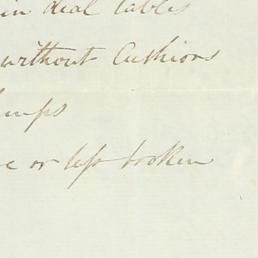 in deal tables
without Cushions
e or less broken